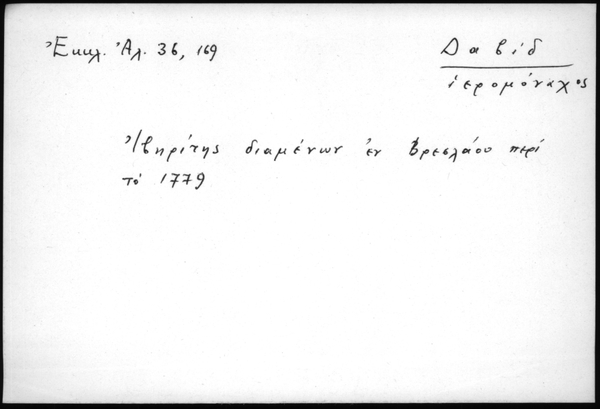 Ἐκκλ. Ἀλ. 36, 169
Δαβίδ
ἱερομόναχος
Ἰβηρίτης διαμένων ἐν Βρεσλάου περί
τό 1779